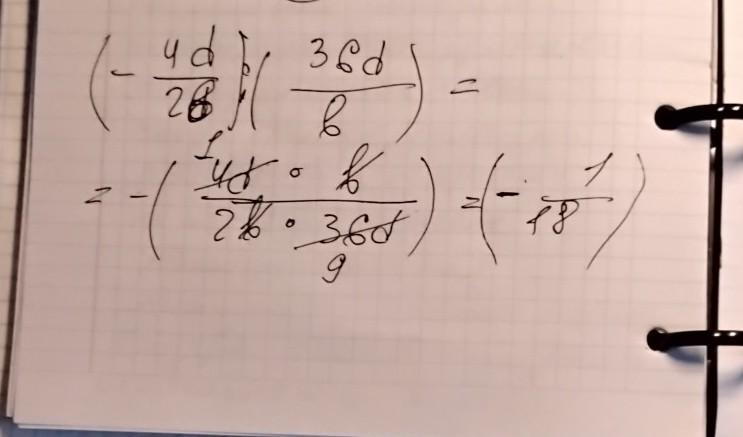 (- 4d/2b) : (36d/b) =
= -(4d · b / 2b · 36d) = (- 1/18)
1
9